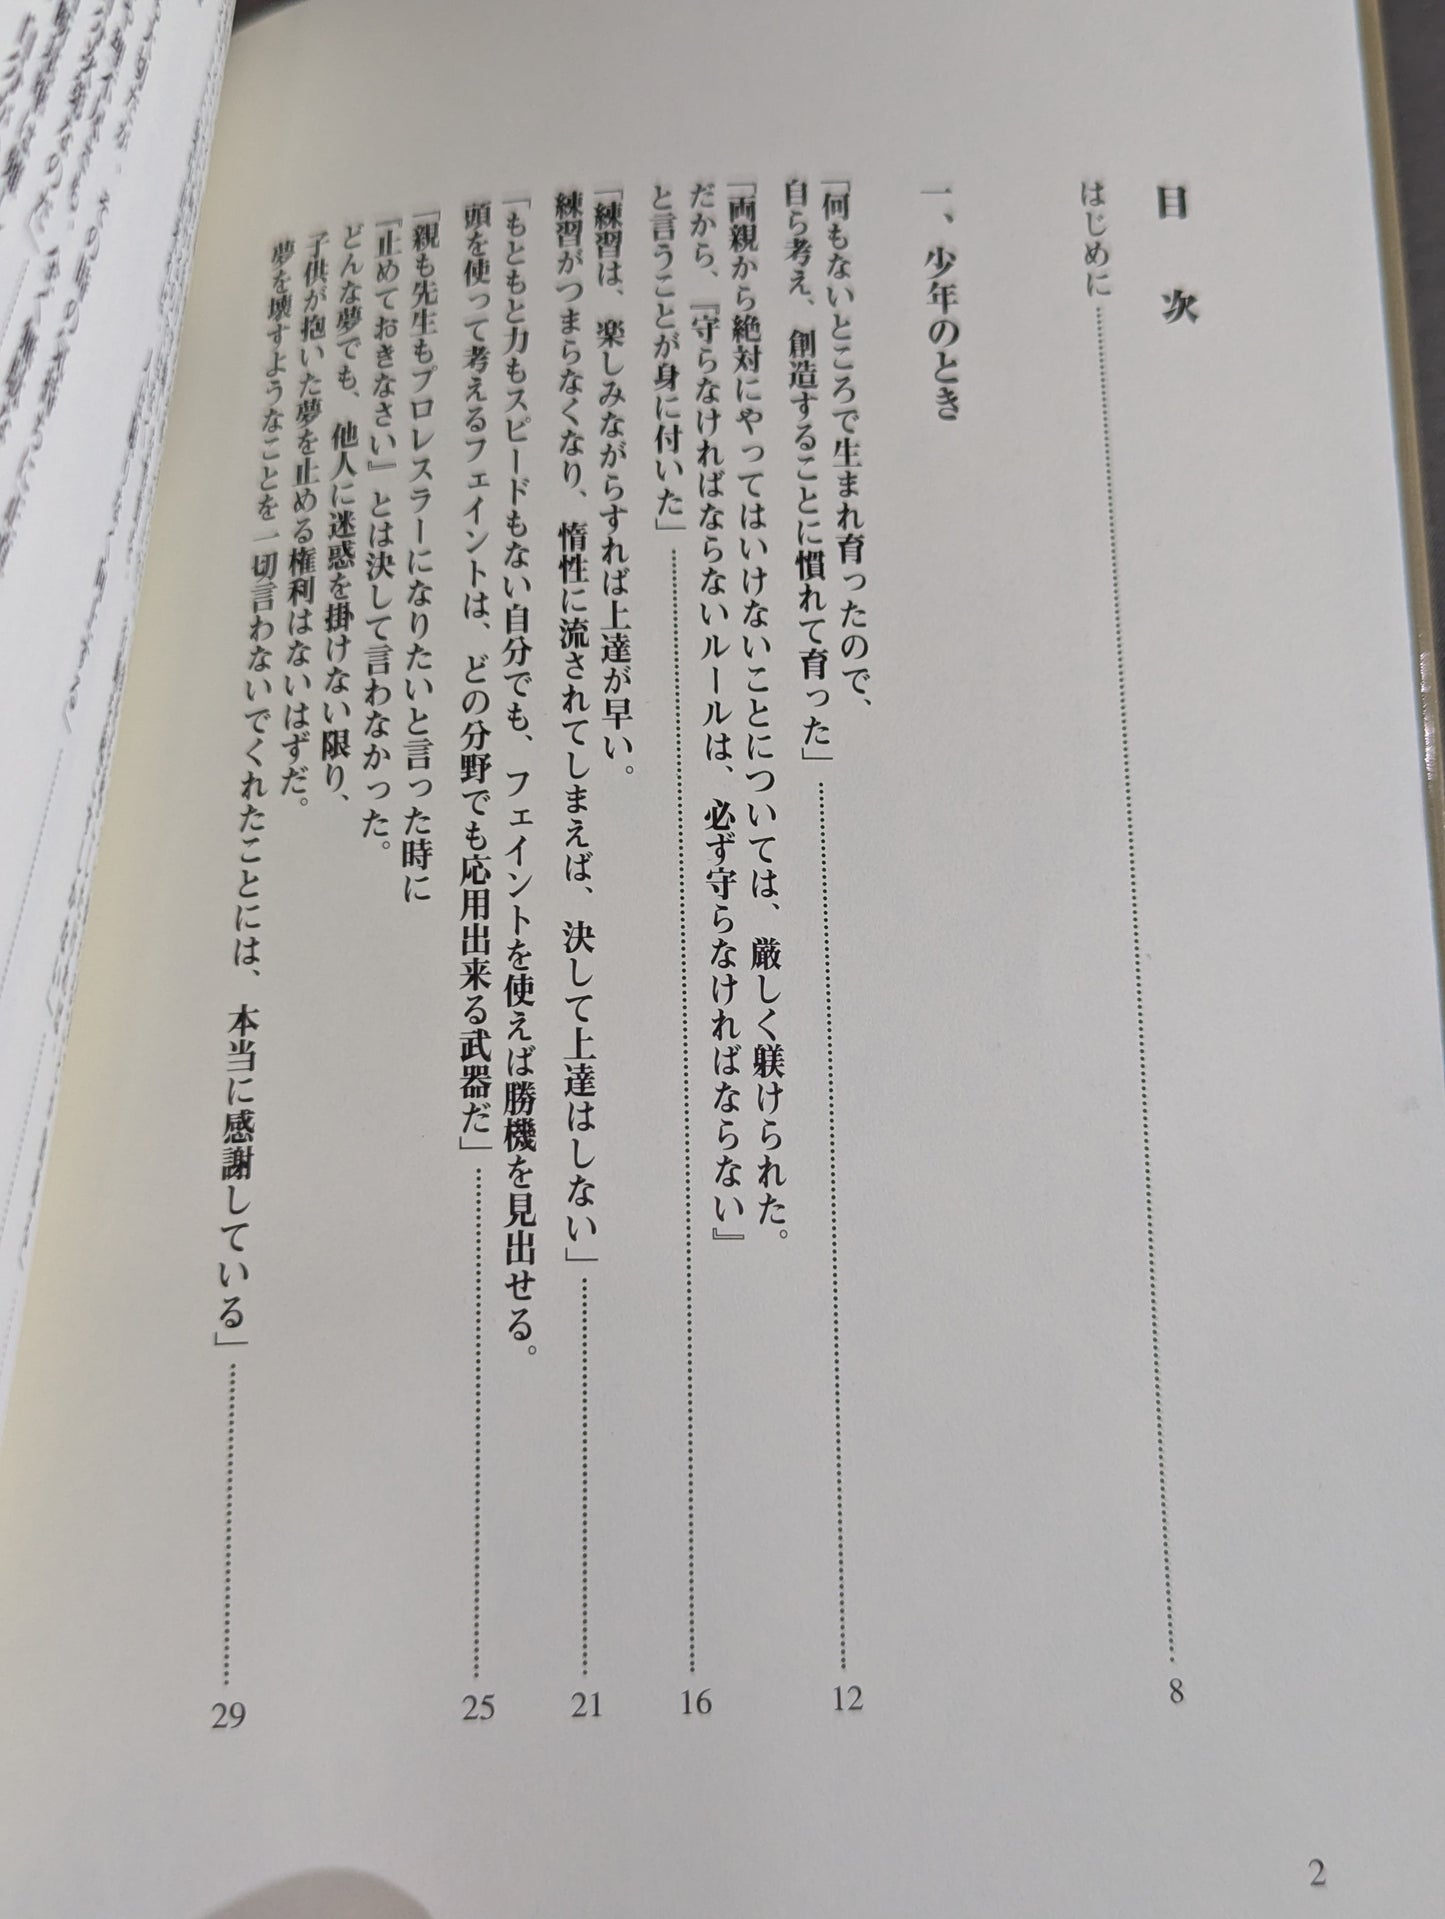 目次
はじめに 8
一、少年のとき
「何もないところで生まれ育ったので、
自ら考え、創造することに慣れて育った」 12
「両親から絶対にやってはいけないことについては、厳しく躾けられた。
だから、『守らなければならないルールは、必ず守らなければならない』
と言うことが身に付いた」 16
「練習は、楽しみながらすれば上達が早い。
練習がつまらなくなり、惰性に流されてしまえば、決して上達はしない」 21
「もともと力もスピードもない自分でも、フェイントを使えば勝機を見出せる。
頭を使って考えるフェイントは、どの分野でも応用出来る武器だ」 25
「親も先生もプロレスラーになりたいと言った時に
『止めておきなさい』とは決して言わなかった。
どんな夢でも、他人に迷惑を掛けない限り、
子供が抱いた夢を止める権利はないはずだ。
夢を壊すようなことを一切言わないでくれたことには、本当に感謝している」 29
2